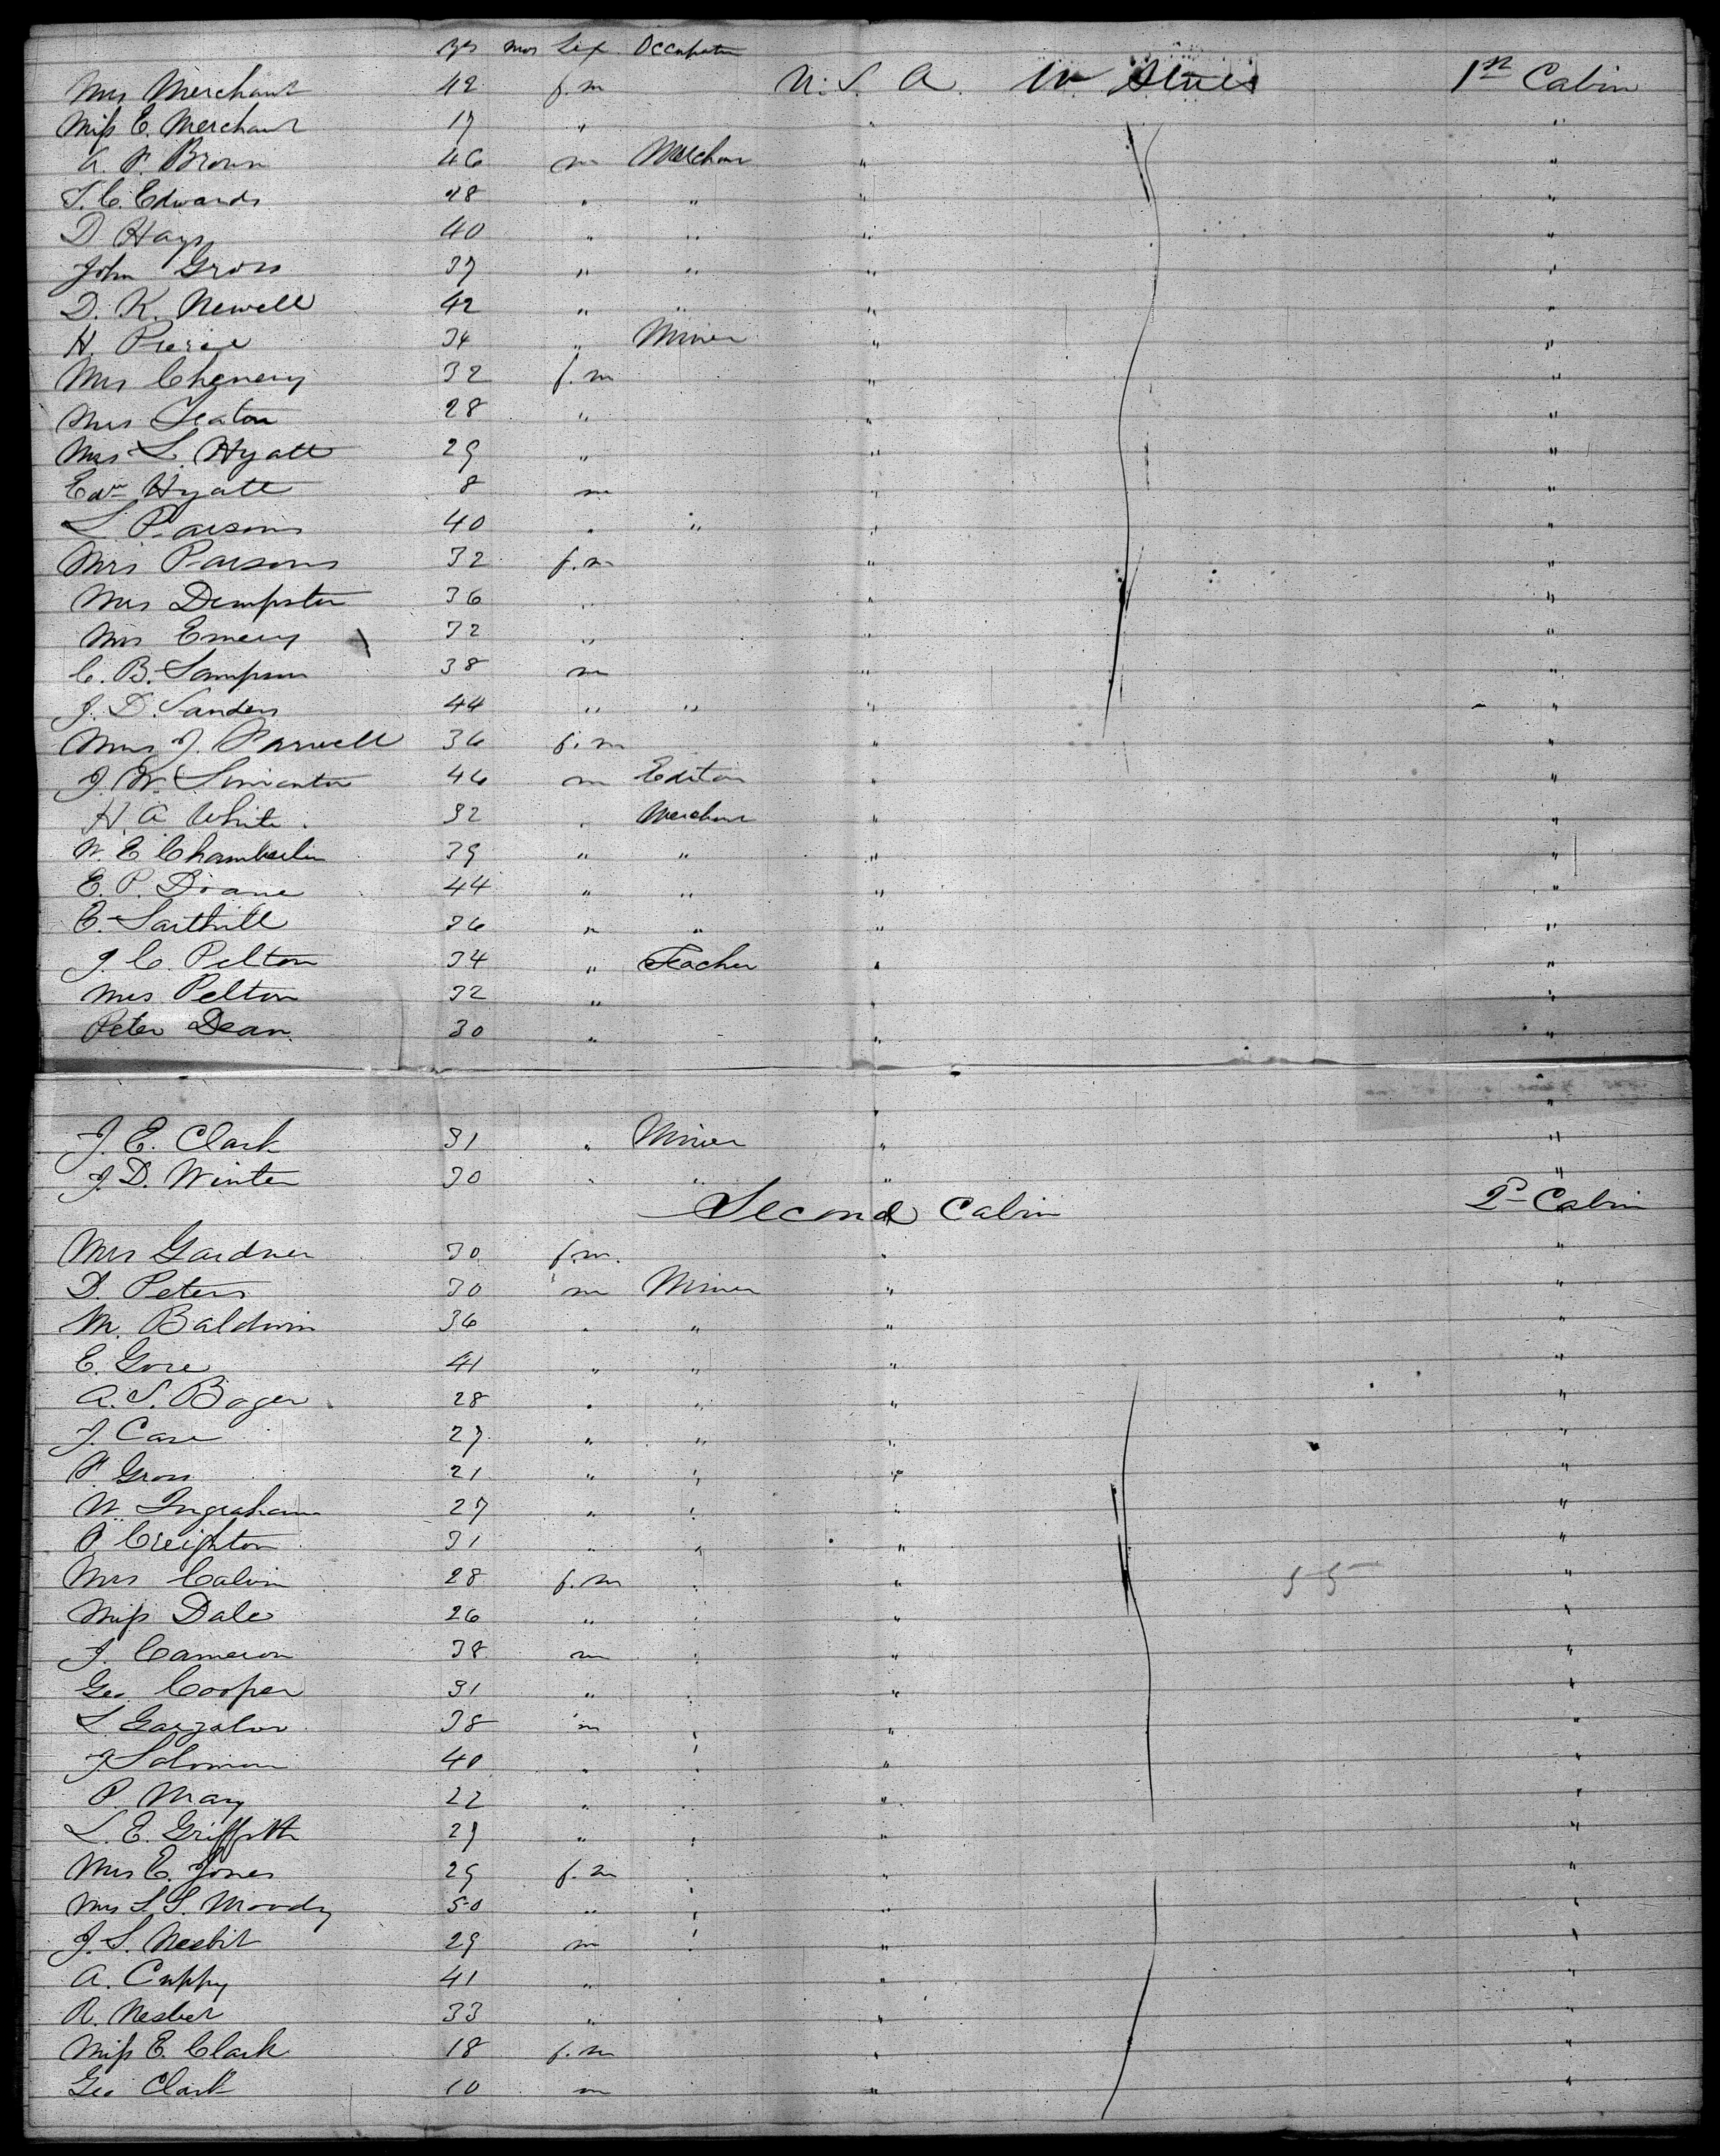 Yrs Mos Sex Occupation
Mrs Merchant 42 f.m U.S.A. U States 1st Cabin
Miss E. Merchant 17 " " "
A. F. Brown 46 m Merchan " "
S. C. Edwards 28 " " " "
D Hays 40 " " " "
John Gross 37 " " " "
D. K. Newell 42 " " " "
H. Pierce 34 " Miner " "
Mrs Chenery 32 f.m " "
Mrs Seaton 28 " " "
Mrs L. Hyatt 29 " " "
Edwn Hyatt 8 m " "
L Parsons 40 " " " "
Mrs Parsons 32 f.m " "
Mrs Dempster 36 " " "
Mrs Emery 32 " " "
C. B. Sampson 38 m " "
J. D. Sanders 44 " " " "
Mrs J. Farwell 36 f.m " "
J. W. Simonton 46 m Editor " "
H. A White 32 " Merchan " "
W. E Chamberlin 39 " " " "
E. P. Doane 44 " " " "
E. 36 " " " "
J. C. Pelton 34 " Teacher " "
Mrs Pelton 32 " " "
Peter Dean 30 " " "
"
J. E. Clark 31 " Miner " "
J. D. Winter 30 " " " "
Second Cabin 2d Cabin
Mrs Gardner 30 f.m. " "
D. Peters 30 m Miner " "
M. Baldwin 36 " " " "
E. Gore 41 " " " "
A. S. Boger 28 " " " "
J. Case 27 " " " "
F. Gross 21 " " " "
W. Ingraham 27 " " " "
P. Creighton 31 " " " "
Mrs Calvin 28 f.m " " 55 "
Miss Dale 26 " " " "
J. Cameron 38 m " " "
Geo. Cooper 31 " " " "
L 38 m " " "
J Solomon 40 " " " "
P. Mary 22 " " " "
L. E. Griffith 27 " " " "
Mrs E. Jones 29 f.m " " "
Mrs S. S. Moody 50 " " " "
J. S. Nesbit 29 m " " "
A. Cuppy 41 " " "
R. Nesbet 33 " " "
Miss E. Clark 18 f.m " "
Geo Clark 10 m " "